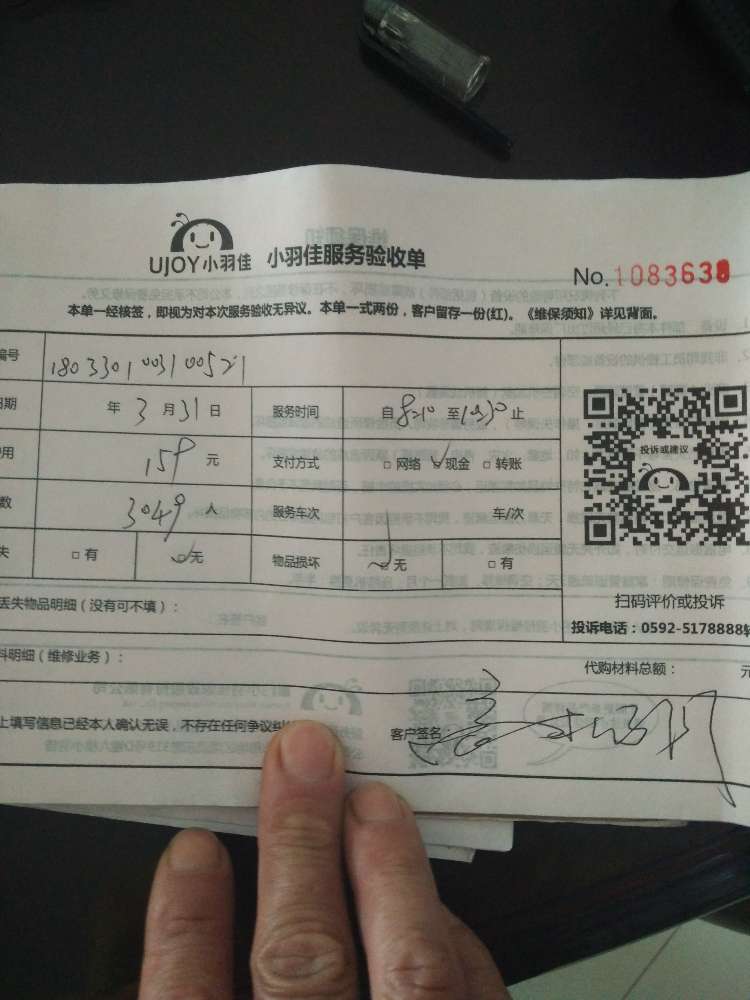 UJOY小羽佳 小羽佳服务验收单
No.1083638
本单一经核签，即视为对本次服务验收无异议。本单一式两份，客户留存一份(红)。《维保须知》详见背面。
编号 1803301003100521
日期 年 3 月 31 日 服务时间 自 8:10 至 10:30 止
用 159 元 支付方式 □ 网络 ✓现金 □ 转账
数 3049 人 服务车次 车/次
失 □ 有 ✓无 物品损坏 无 □ 有
投诉或建议
扫码评价或投诉
投诉电话：0592-5178888转
丢失物品明细（没有可不填）：
料明细（维修业务）： 代购材料总额： 元
上填写信息已经本人确认无误，不存在任何争议纠 客户签名